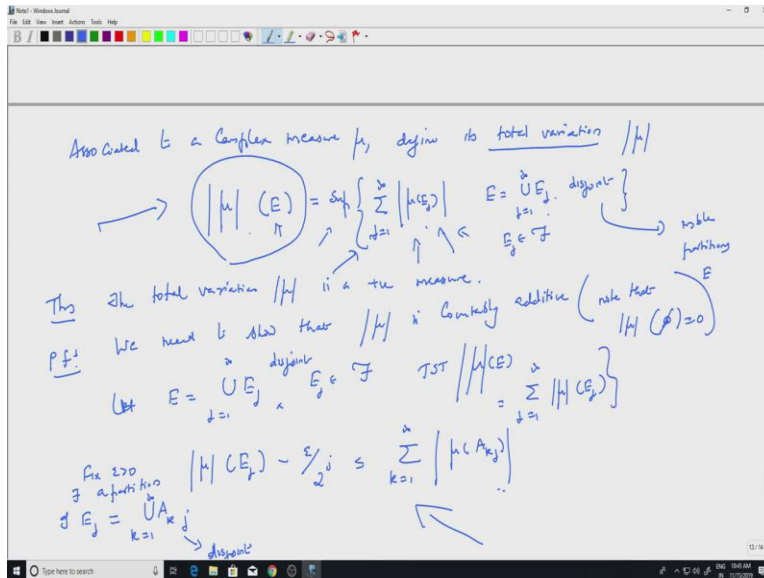 Note1 - Windows Journal
File Edit View Insert Actions Tools Help
Associated to a Complex measure μ, define its total variation |μ|
|μ| (E) = Sup { ∑_{j=1}^∞ |μ(E_j)| E = ∪_{j=1}^∞ E_j disjoint }
E_j ∈ F
msble
partitions
E
Thm The total variation |μ| is a +ve measure.
Pf: We need to show that |μ| is Countably additive (note that
|μ| (ϕ) = 0)
Let E = ∪_{j=1}^∞ E_j, disjoint E_j ∈ F TST |μ|(E)
= ∑_{j=1}^∞ |μ|(E_j) }
Fix ε>0
∃ a partition
of E_j = ∪_{k=1}^∞ A_{kj}
disjoint
|μ|(E_j) - ε/2^j ≤ ∑_{k=1}^∞ |μ(A_{kj})|
13/14
Type here to search
ENG 10:45 AM
IN 11/15/2019